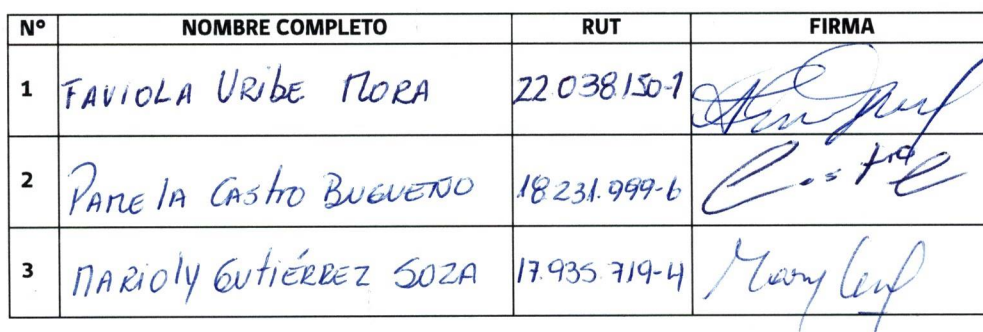 N° NOMBRE COMPLETO RUT FIRMA
1 FAVIOLA URIBE MORA 22.038.150-1
2 PAMELA CASTRO BUGUEÑO 18.231.999-6
3 MARIOLY GUTIÉRREZ SOZA 17.935.719-4